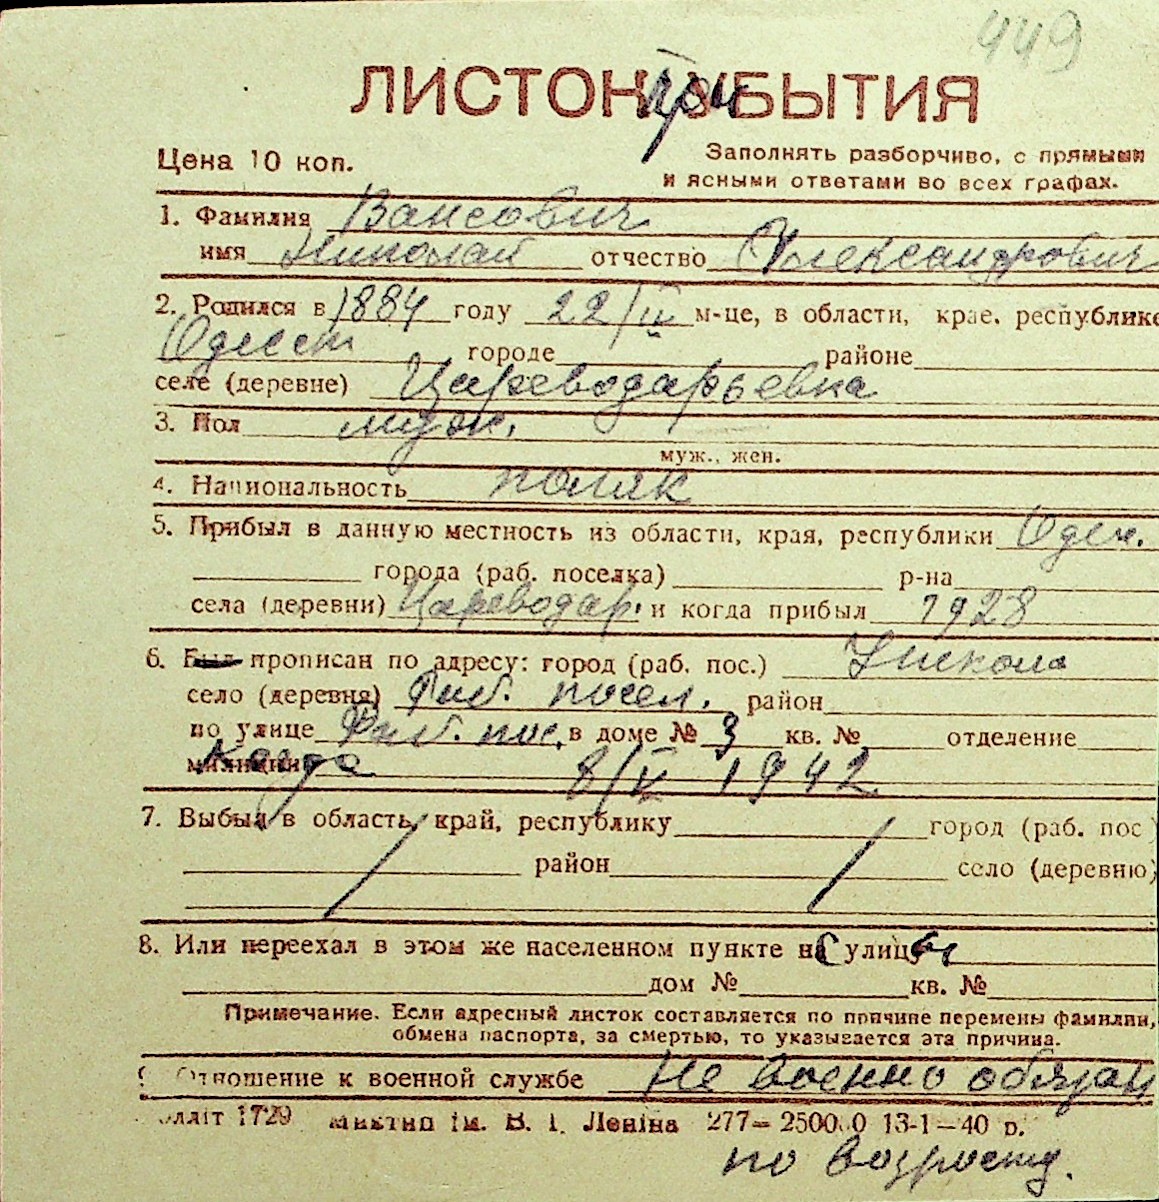 449
ЛИСТОК УБЫТИЯ
При
Цена 10 коп.
Заполнять разборчиво, с прямыми
и ясными ответами во всех графах.
1. Фамилия Вансович
имя Николай отчество Александрович
2. Родился в 1884 году 22/IV м-це, в области, крае, республике
Одесск городе районе
селе (деревне) Цареводарьевка
3. Пол муж.
муж., жен.
4. Национальность поляк
5. Прибыл в данную местность из области, края, республики Одес.
города (раб. поселка) р-на
села (деревни) Цареводар. и когда прибыл 1928
6. Был прописан по адресу: город (раб. пос.)
село (деревня) посел. район
по улице пос. в доме № 3 кв. № отделение
милиции Когда 8/V 1942
7. Выбыл в область, край, республику город (раб. пос.)
район село (деревню)
8. Или переехал в этом же населенном пункте на С улицы
дом № кв. №
Примечание. Если адресный листок составляется по причине перемены фамилии,
обмена паспорта, за смертью, то указывается эта причина.
Отношение к военной службе Не военно обязан
1729 ім. В. І. Леніна 277— 13-1—40 р.
по возросту.